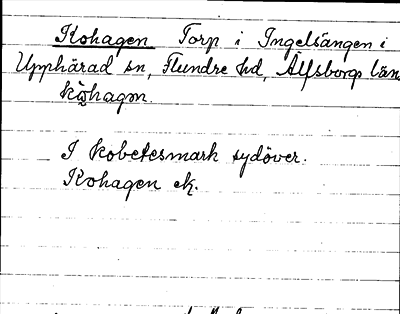 Kohagen Torp i Ingelsängen i
Upphärad sn, Flundre hd, Älfsborgs län.
kὼhagαn
I kobetesmark sydöver.
Kohagen ek.